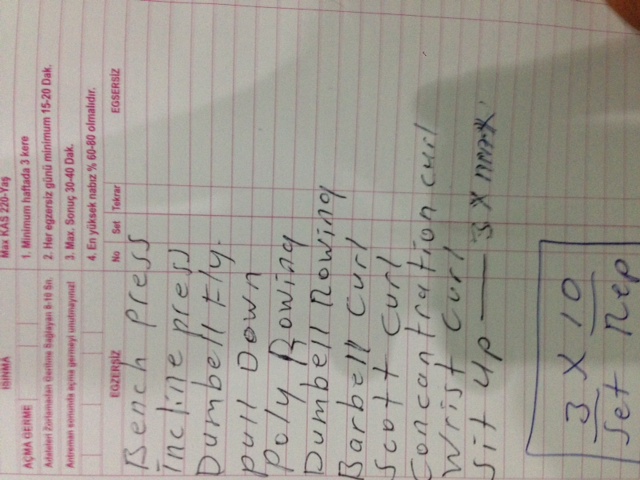 ISINMA
Max KAS 220-Yaş
AÇMA GERME
1. Minimum haftada 3 kere
Adaleleri Zorlamadan Gerilme Sağlayan 8-10 Sn.
2. Her egzersiz günü minimum 15-20 Dak.
Antreman sonunda açma germeyi unutmayınız!
3. Max. Sonuç 30-40 Dak.
4. En yüksek nabız % 60-80 olmalıdır.
EGZERSİZ No Set Tekrar EGSERSİZ
Bench press
incline press
Dumbell Fly.
pull Down
poly Rowing
Dumbell Rowing
Barbell curl
Scott curl
Concantration curl
Wrist curl
Sit Up — 3 X max
3 X 10
Set Rep